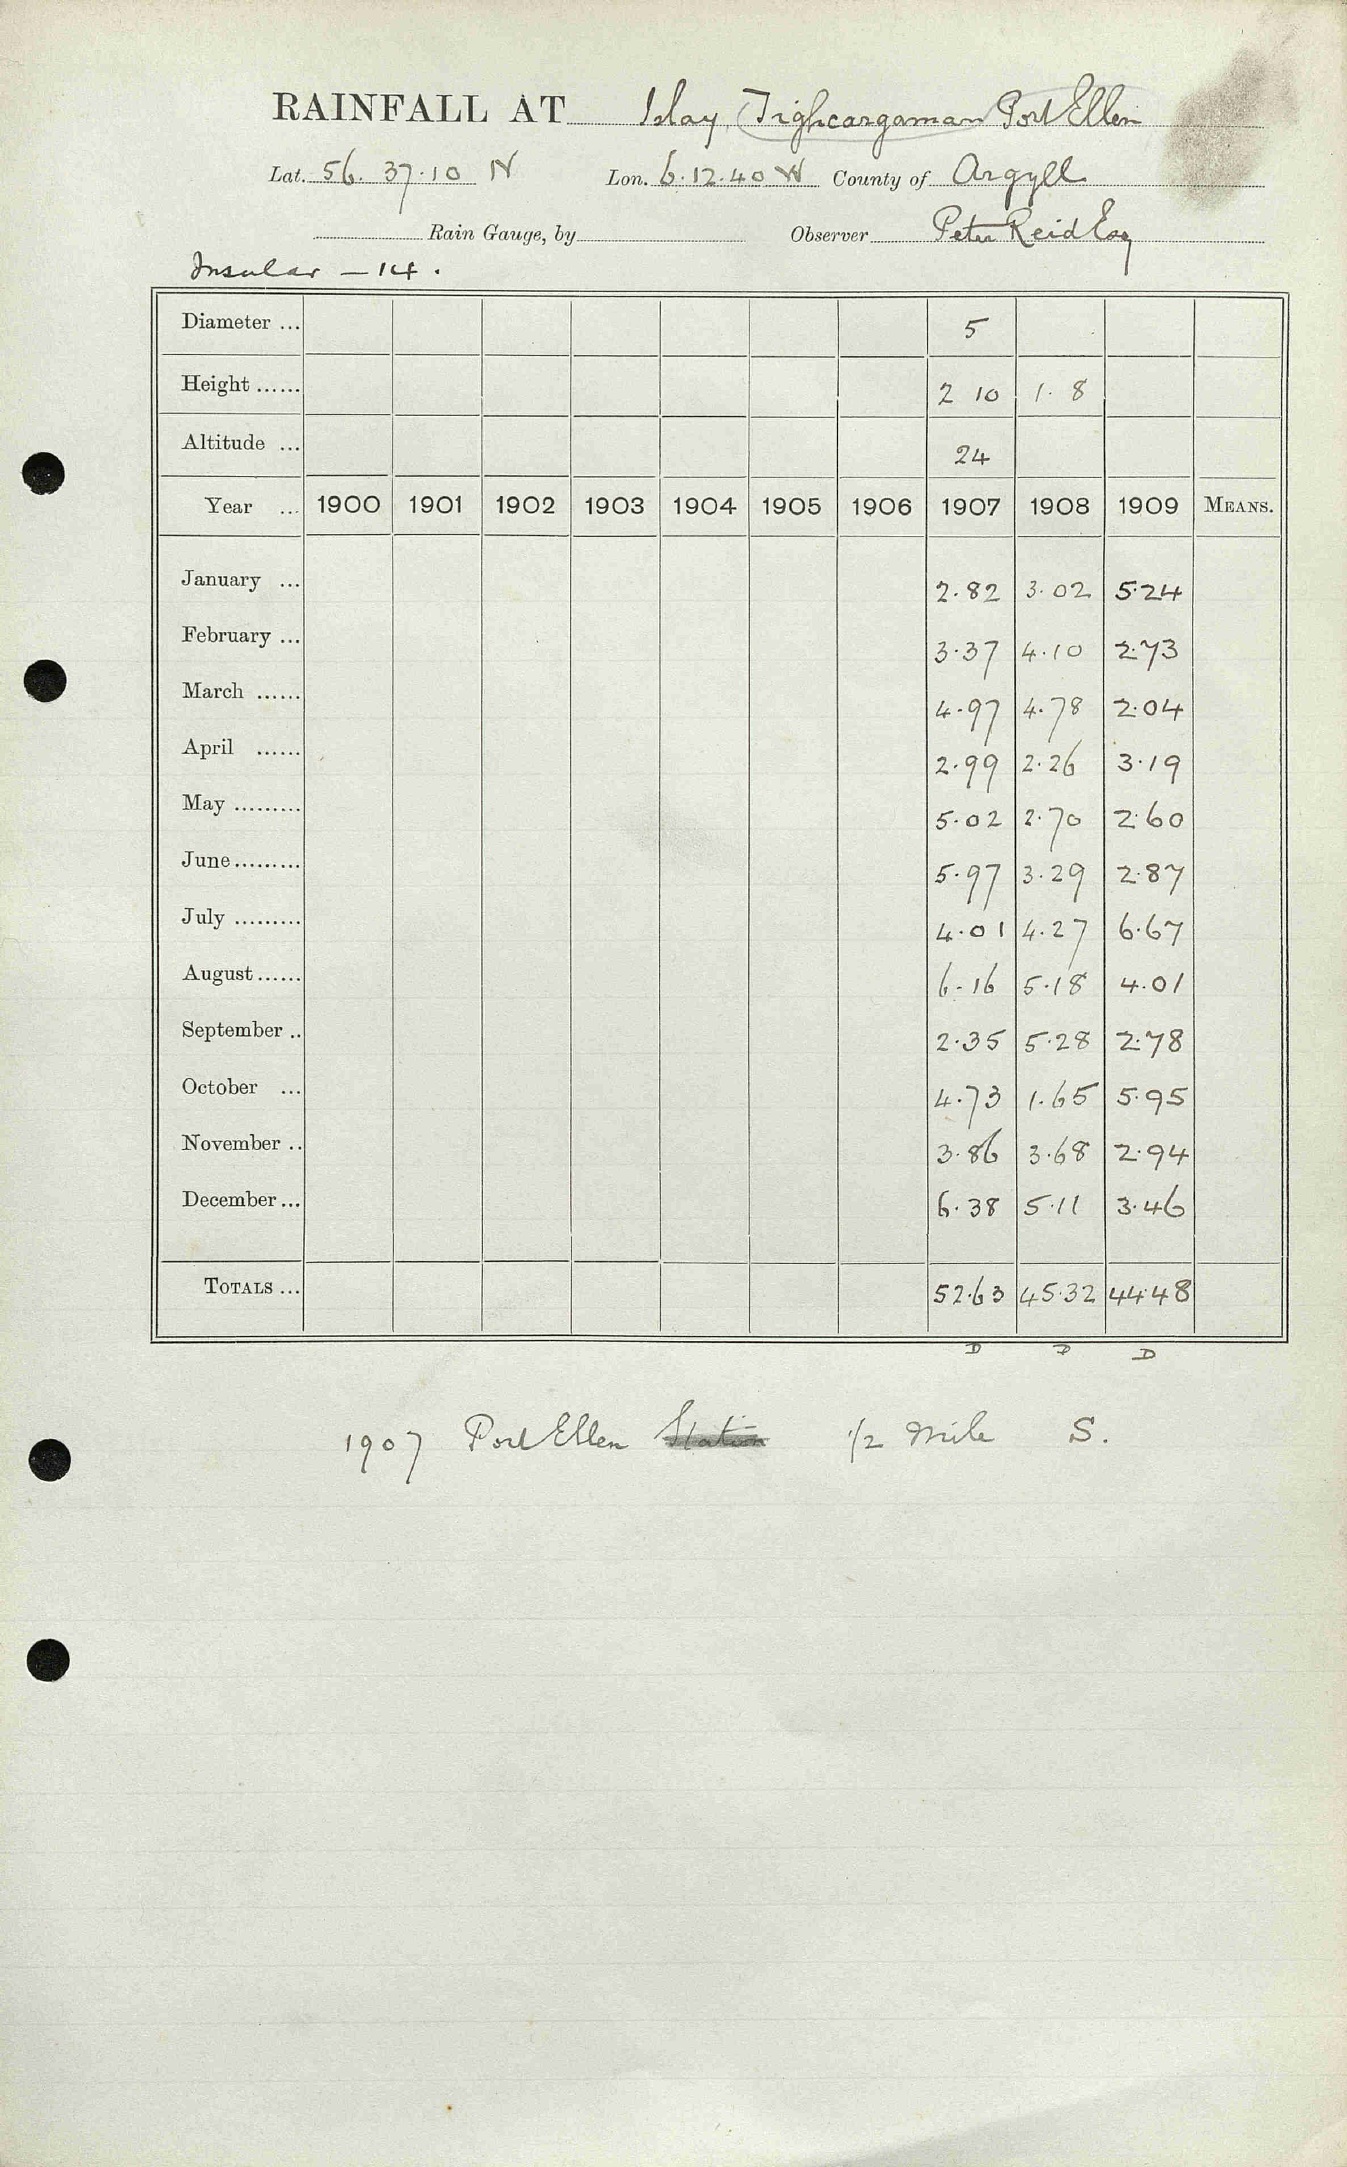 RAINFALL AT Islay, Tighcargaman Port Ellen
Lat. 56. 37.10 N Lon. 6.12.40 W County of Argyll
Rain Gauge, by Observer Peter Reid Esq
Insular — 14.
Diameter ... 5
Height ...... 2 10 1. 8
Altitude ... 24
Year ... 1900 1901 1902 1903 1904 1905 1906 1907 1908 1909 MEANS.
January ... 2.82 3.02 5.24
February ... 3.37 4.10 2.73
March ...... 4.97 4.78 2.04
April ...... 2.99 2.26 3.19
May ......... 5.02 2.70 2.60
June ......... 5.97 3.29 2.87
July ......... 4.01 4.27 6.67
August ...... 6.16 5.18 4.01
September .. 2.35 5.28 2.78
October ... 4.73 1.65 5.95
November .. 3.86 3.68 2.94
December ... 6.38 5.11 3.46
TOTALS ... 52.63 45.32 44.48
D D D
1907 Port Ellen Station 1/2 mile S.